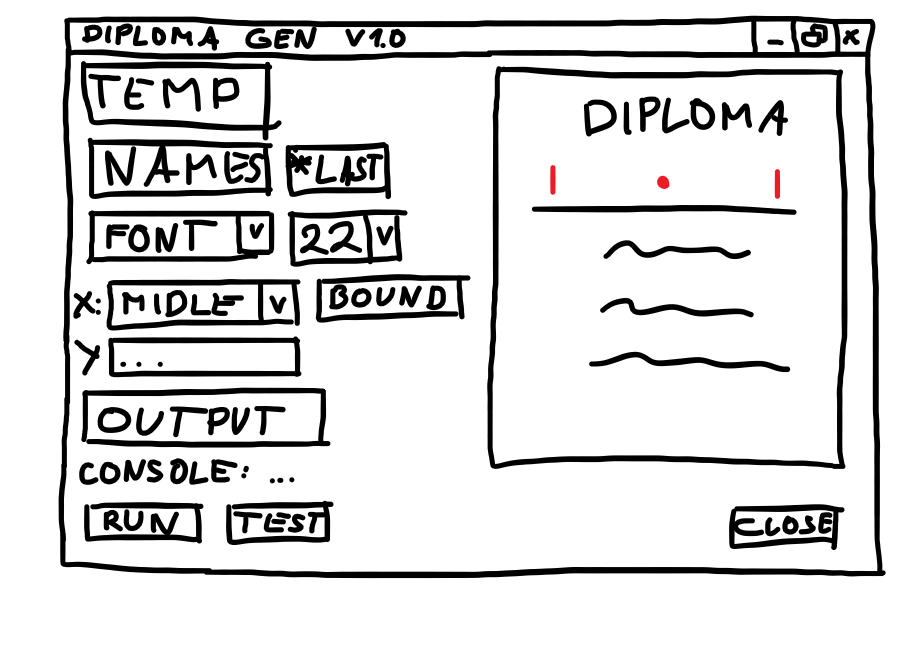 DIPLOMA GEN V1.0
TEMP
NAMES *LAST
FONT V 22 V
X: MIDLE V BOUND
Y ...
OUTPUT
CONSOLE: ...
RUN TEST
DIPLOMA
CLOSE